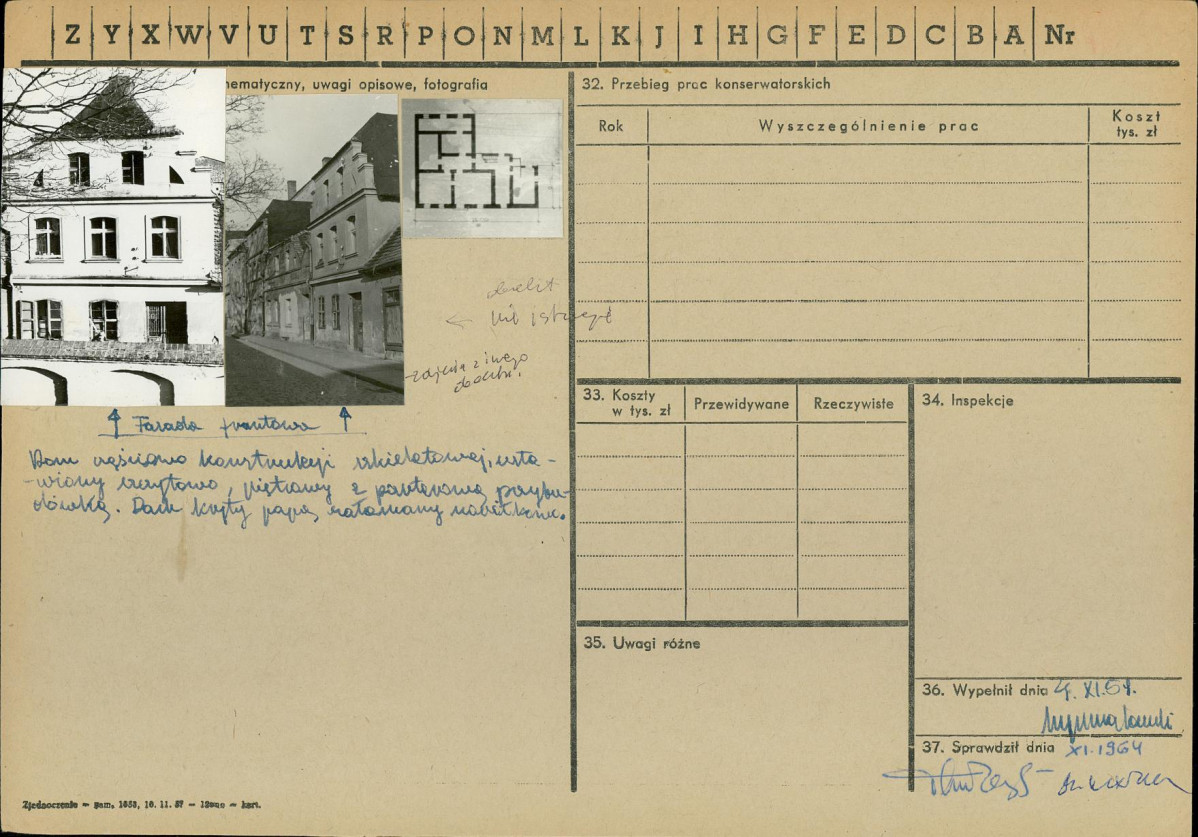 Z Y X W V U T S R P O N M L K J I H G F E D C B A Nr
hematyczny, uwagi opisowe, fotografia
nie istnieje
zdjęcia z innego
obiektu.
Fasada frontowa
Dom częściowo konstrukcji szkieletowej, usta-
-wiony szczytowo, piętrowy z parterową przybu-
dówką. Dach kryty papą, załamany
32. Przebieg prac konserwatorskich
Rok
Wyszczególnienie prac
Koszt
tys. zł
33. Koszty
w tys. zł
Przewidywane
Rzeczywiste
34. Inspekcje
35. Uwagi różne
36. Wypełnił dnia 4. XI.59.
37. Sprawdził dnia XI.1964
Zjednoczenie — zam. 1053, 10. 11. 57 — — kart.